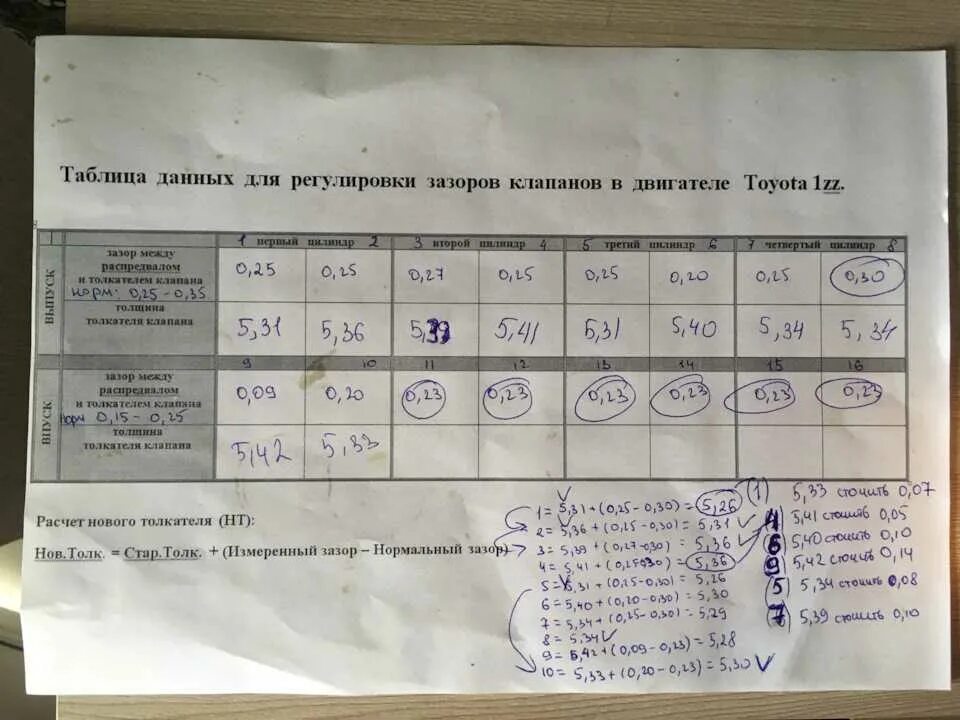 Таблица данных для регулировки зазоров клапанов в двигателе Toyota 1zz.
1 первый цилиндр 2 3 второй цилиндр 4 5 третий цилиндр 6 7 четвертый цилиндр 8
ВЫПУСК
зазор между
распредвалом
и толкателем клапана
норм: 0,25 - 0,35
0,25 0,25 0,27 0,25 0,25 0,20 0,25 0,30
толщина
толкателя клапана
5,31 5,36 5,39 5,41 5,31 5,40 5,34 5,34
9 10 11 12 13 14 15 16
ВПУСК
зазор между
распредвалом
и толкателем клапана
норм 0,15 - 0,25
0,09 0,20 0,23 0,23 0,23 0,23 0,23 0,23
толщина
толкателя клапана
5,42 5,33
Расчет нового толкателя (НТ):
Нов.Толк. = Стар.Толк. + (Измеренный зазор – Нормальный зазор)
1 = 5,31 + (0,25 - 0,30) = 5,26
2 = 5,36 + (0,25 - 0,30) = 5,31
3 = 5,39 + (0,27 - 0,30) = 5,36
4 = 5,41 + (0,25 0,30) = 5,36
5 = 5,31 + (0,25 - 0,30) = 5,26
6 = 5,40 + (0,20 - 0,30) = 5,30
7 = 5,34 + (0,25 - 0,30) = 5,29
8 = 5,34
9 = 5,42 + (0,09 - 0,23) = 5,28
10 = 5,33 + (0,20 - 0,23) = 5,30
(1) 5,33 сточить 0,07
4 5,41 сточить 0,05
6 5,40 сточить 0,10
9 5,42 сточить 0,14
5 5,34 сточить 0,08
7 5,39 сточить 0,10